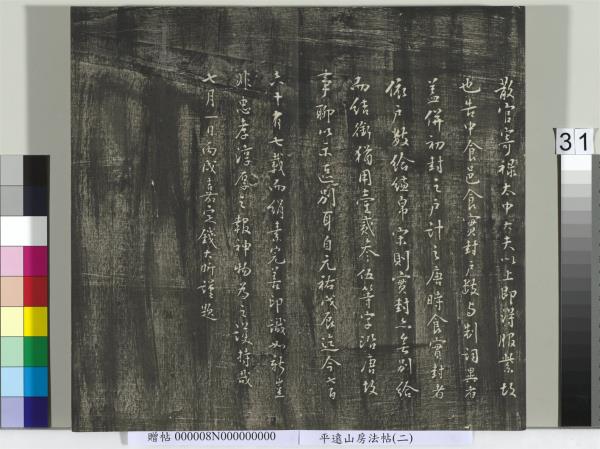 散官寄祿大中大夫以上即得服紫故
也告中食邑食實封戶數与制詞異者
蓋併初封之戶計之唐時食實封者
依戶數給縑帛宋則實封亦無別給
而結銜猶用壹貳叁伍等字沿唐故
事聊以示區別耳自元祐戊辰迄今七百
十有七載而綃素完善印識如新豈
非忠孝淳厚之報神物為之護持哉
七月一日丙戌嘉定錢大昕謹題
31
贈帖 000008N000000000 平遠山房法帖(二)